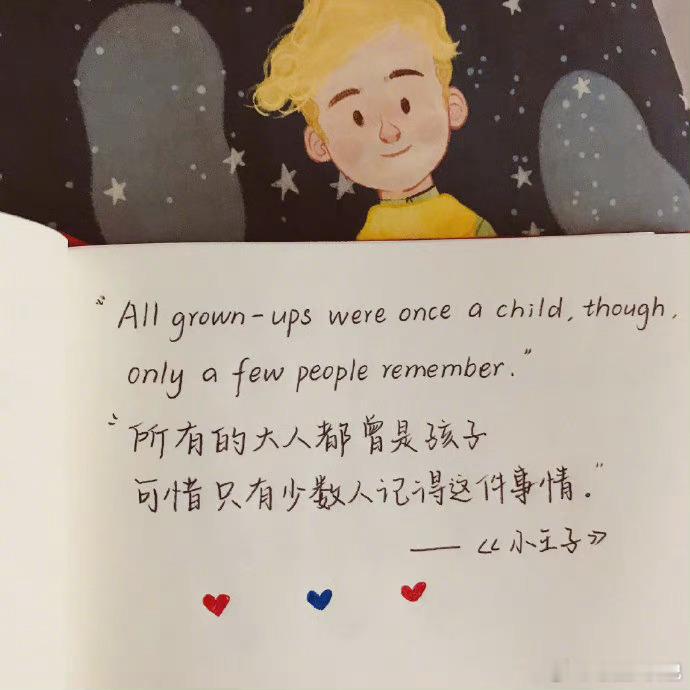 “All grown-ups were once a child, though,
only a few people remember.”
“所有的大人都曾是孩子
可惜只有少数人记得这件事情.”
——《小王子》